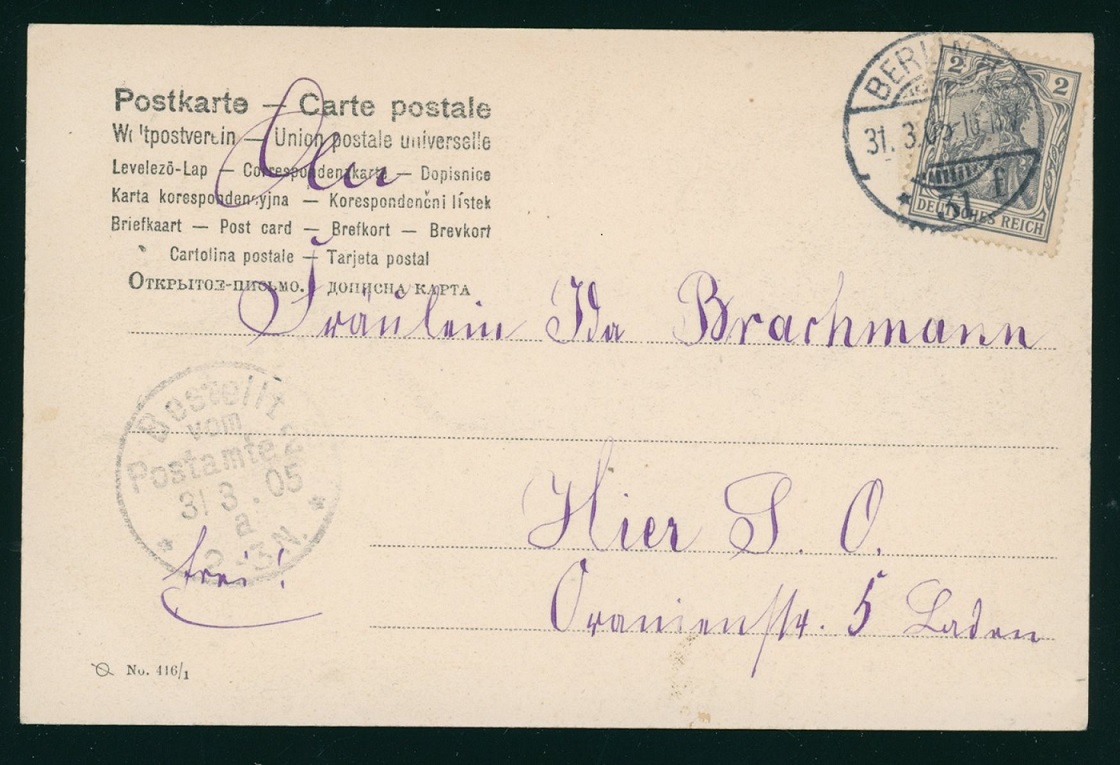 Postkarte — Carte postale
Weltpostverein — Union postale universelle
Levelező-Lap — Correspondenzkarte — Dopisnice
Karta korespondencyjna — Korespondenční lístek
Briefkaart — Post card — Brefkort — Brevkort
Cartolina postale — Tarjeta postal
Открытое-письмо. дописна карта
BERLIN
31. 3. 05
2 2
DEUTSCHES REICH
Fräulein Ida Brachmann
Bestellt
vom
Postamte
31 3. 05
a
2-3N.
Hier S. O.
frei!
Oranienstr. 5 Laden
No. 416/1